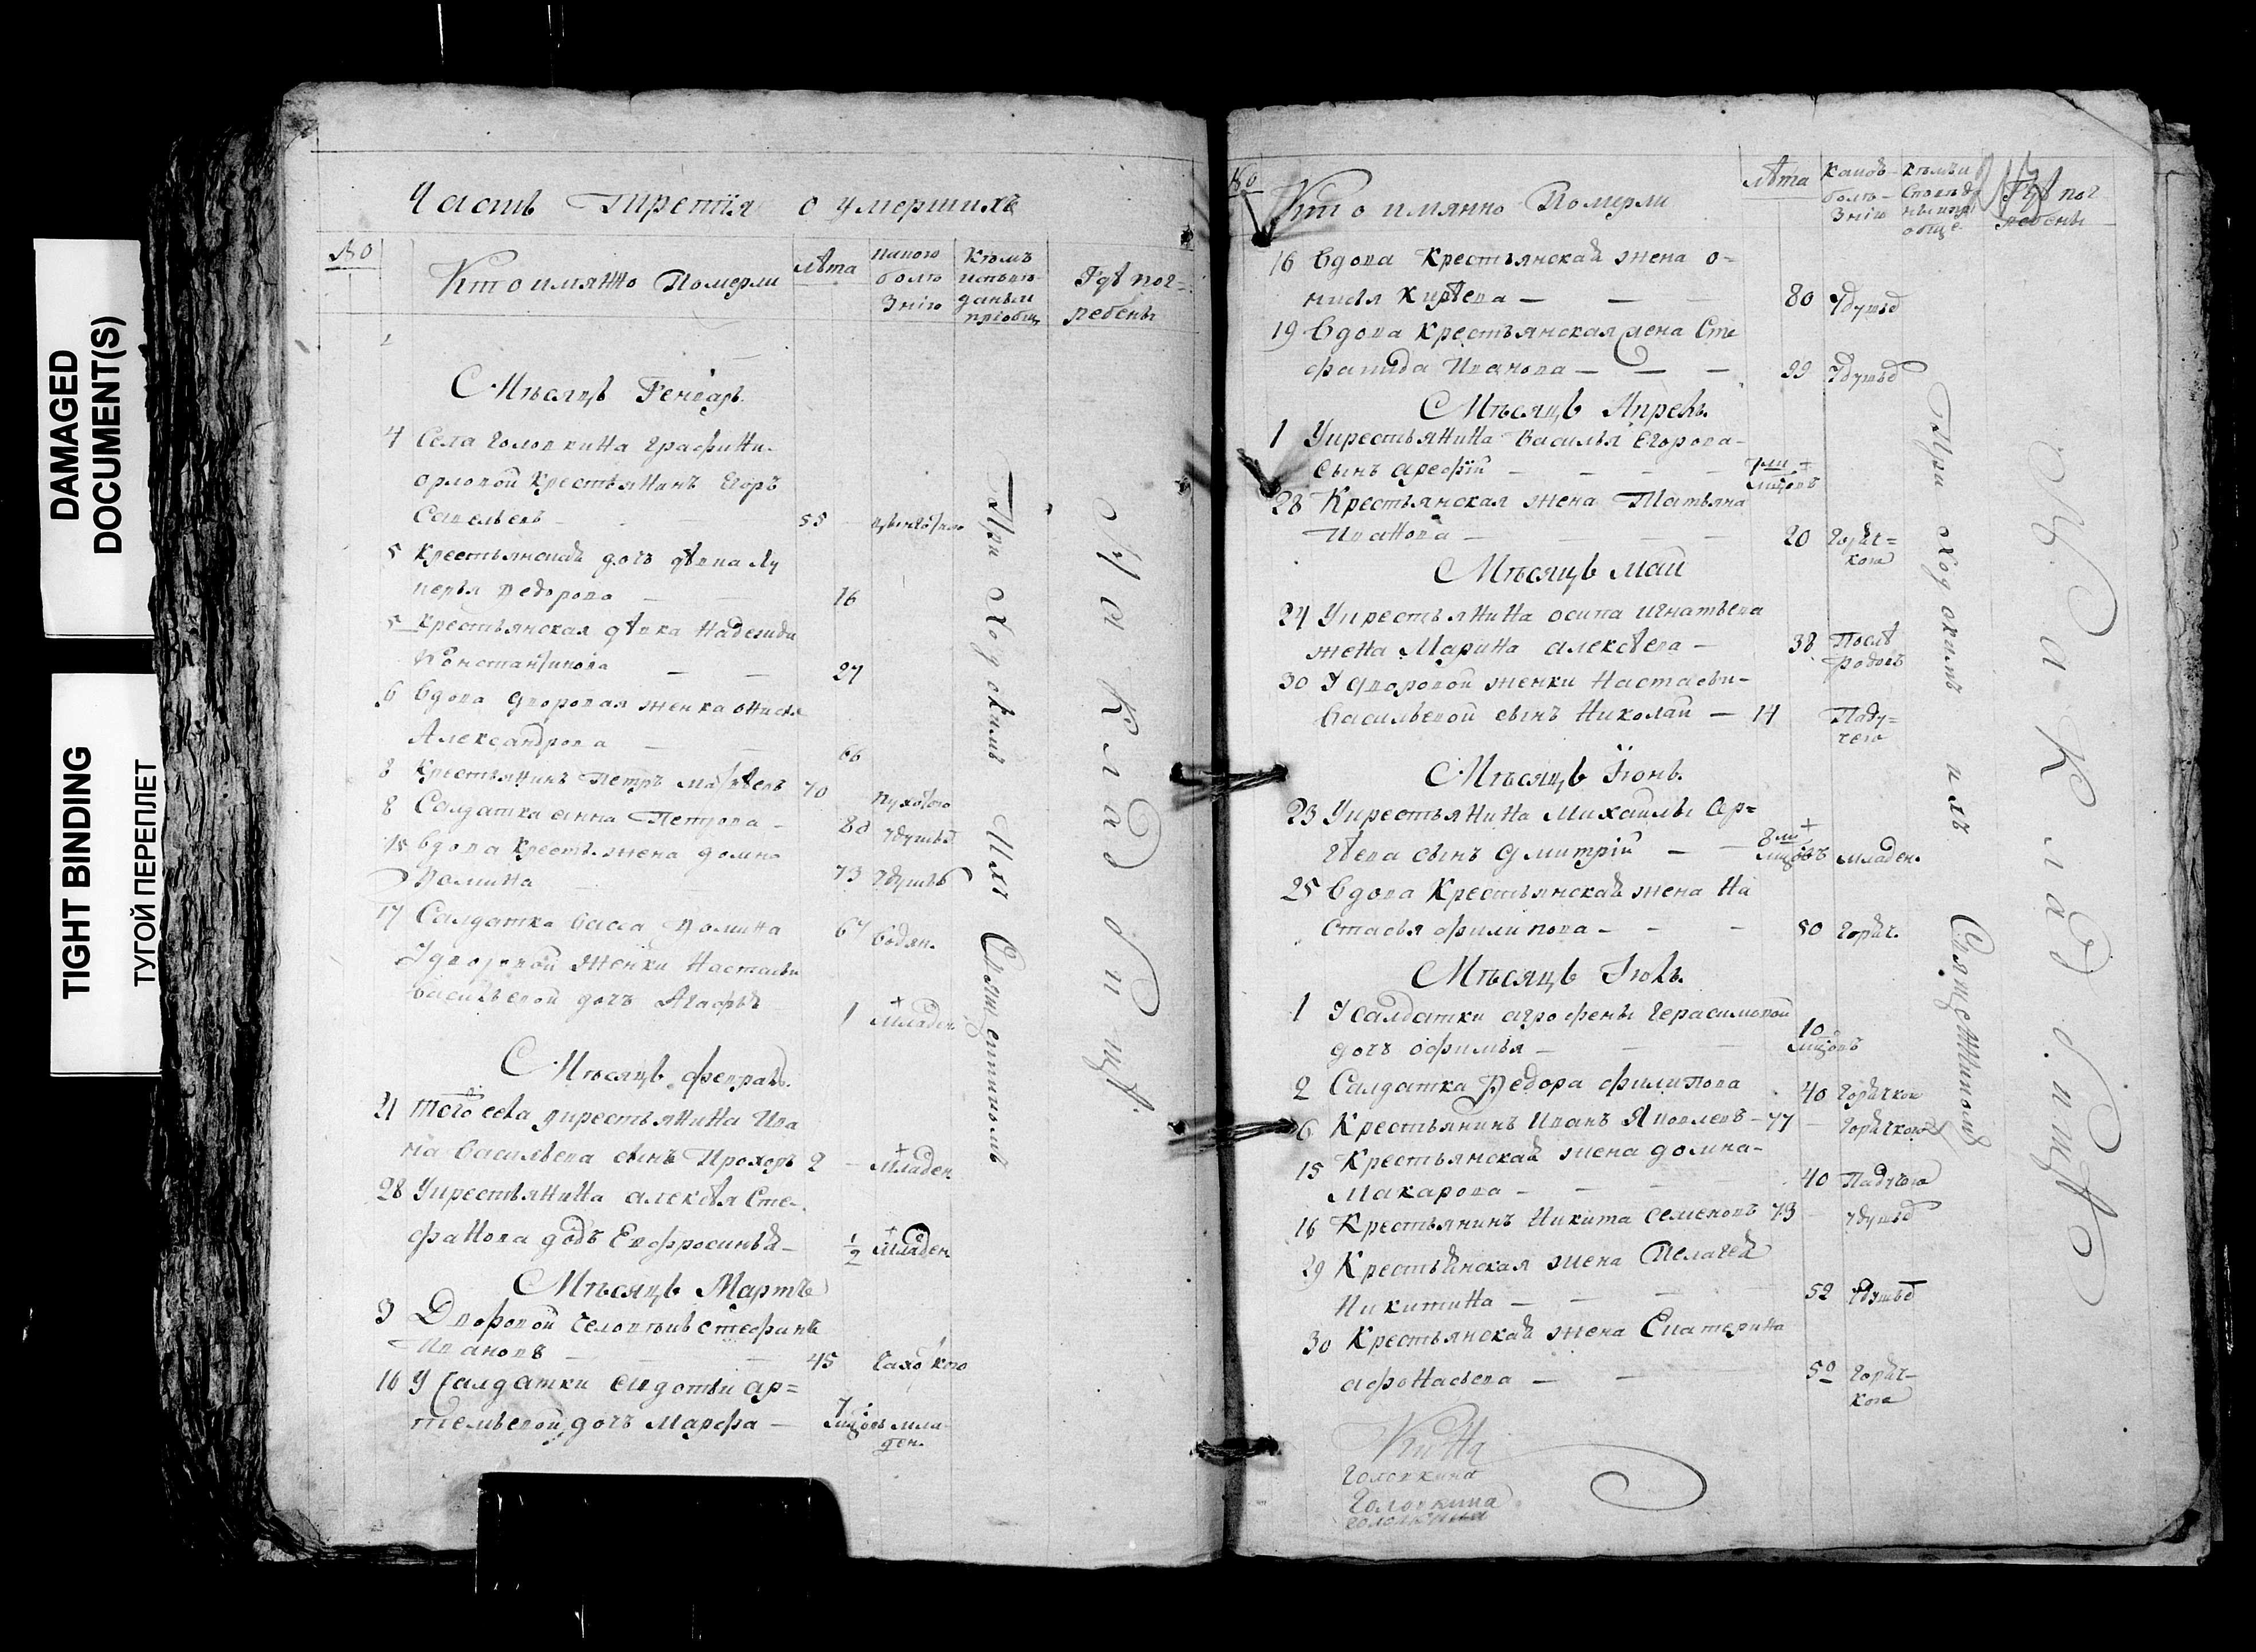 DAMAGED
DOCUMENT(S)
TIGHT BINDING
ТУГОЙ ПЕРЕПЛЕТ
Часть третія о умершихъ
№
Кто имянно Померли
лѣта
какою
болѣ
знію
Кѣмъ
исповѣ
даныи
пріобщ
Гдѣ пог=
ребены
Мѣсяцъ Генварь
4 Села Головкина Графини
орловой крестьянинъ Егоръ
Савельевъ — 55
5 крестьянская дочь дѣвка Лу
керья Ѳедорова — 16
5 крестьянская дѣвка Надежда
Константинова — 27
6 вдова дворовая женка Анисья
Александрова — 66
8 крестьянинъ Петръ Матвѣевъ 70
8 Салдатка анна Петрова — 80 удушьѣ
15 вдова крестьян. жена домна
Ѳомина 73 Удушьѣ
17 Салдатка Васса Ѳомина 67 водян.
У дворовой женки Настасьи
васильевой дочь Агафья 1 Младен
Мѣсяцъ февраль
21 того села у крестьянина Ива
на Васильева сынъ Прохоръ 2 — Младен
28 У крестьянина алексѣя Сте-
фанова дочь Евфросинья — 1/2 Младен
Мѣсяцъ Мартъ
3 Дворовой человѣкъ стефанъ
Ивановъ — 45
16 У Салдатки Евдотьи ар=
темьевой дочь Марфа — 7 мцовъ мла
ден.
При ходскимъ Ихъ Священникомъ
На Кладбищѣ
№
Кто имянно Померли
лѣта
Какою
болѣ
знію
Кѣмъ и
Гдѣ пог
ребены
16 вдова Крестьянская жена о-
нисья Кирѣева — — 80 Удушьѣ
19 вдова Крестьянская жена Сте
фанида Иванова — — — 99 Удушьѣ
Мѣсяцъ Апрель
1 У крестьянина Василья Егорова —
сынъ арефій — — — 7ми мцовъ
28 Крестьянская жена Татьяна
Иванова — — — 20 Горяч=
кою
Мѣсяцъ май
24 У крестьянина осипа игнатьева
жена Марина алексѣева — 38 Послѣ
родовъ
30 У дворовой женки Настасьи —
Васильевой сынъ Николай — 14 Паду=
чею
Мѣсяцъ Іюнь
23 У крестьянина Михаилы Сер=
гѣева сынъ дмитрій — — 8ми мцовъ младен.
25 вдова Крестьянская жена На
стасья филипова — — — 50 горяч.
Мѣсяцъ Іюль
1 У Салдатки агрофены герасимовой
дочь офимья — — 10 мцовъ
2 Салдатка Ѳедора филипова 40 Горячкою
6 Крестьянинъ Иванъ Яковлевъ — 77 — Горячкою
15 Крестьянская жена домна —
Макарова — — 40 Падучею
16 Крестьянинъ Никита семеновъ 73 — удушьѣ
29 Крестьянская жена Пелагея
Никитина — — 52 Удушьѣ
30 Крестьянская жена Екатерина
афонасьева — — 50 Горяч-
кою
головкина
Головкина
головкина
При ходскимъ ихъ Священникомъ
На Кладбищѣ